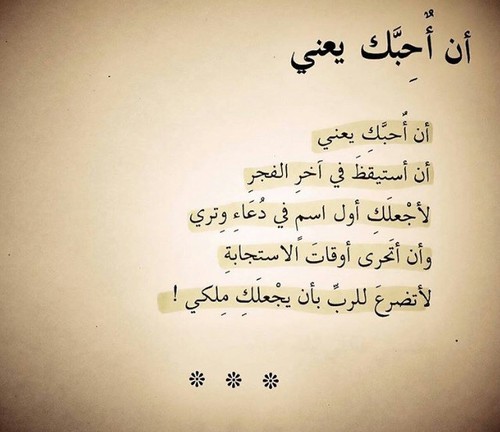 أن أُحِبَّك يعني
أن أُحبَّكِ يعني
أن أستيقظَ في آخرِ الفجرِ
لأجْعلَكِ أول اسم في دُعَاءِ وِتري
وأن أتَحرى أوقاتَ الاستجابةِ
لأتضرعَ للربِّ بأن يجْعلَكِ مِلكي !
* * *